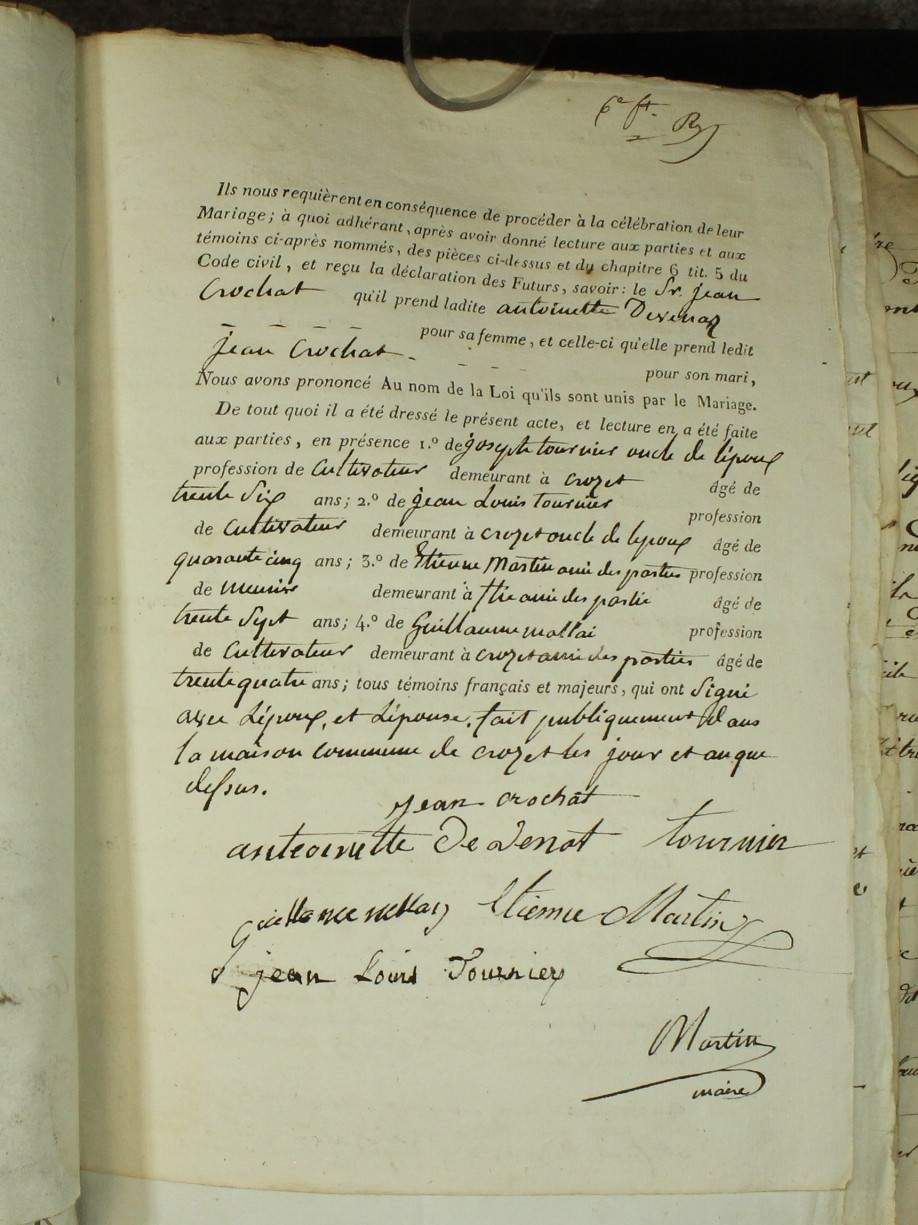 6e ft. Ry
Ils nous requièrent en conséquence de procéder à la célébration de leur
Mariage ; à quoi adhérant, après avoir donné lecture aux parties et aux
témoins ci-après nommés, des pièces ci-dessus et du chapitre 6 tit. 5 du
Code civil, et reçu la déclaration des Futurs, savoir : le Sr. jean
Crochat qu'il prend ladite antoinette Devenaz
pour sa femme, et celle-ci qu'elle prend ledit
jean Crochat. pour son mari,
Nous avons prononcé Au nom de la Loi qu'ils sont unis par le Mariage.
De tout quoi il a été dressé le présent acte, et lecture en a été faite
aux parties, en présence 1.º de joseph tournier oncle de lépoux
profession de Cultivateur demeurant à crozet âgé de
trente Six ans; 2.º de jean Louis tournier profession
de Cultivateur demeurant à crozet oncle de lepoux âgé de
quarante cinq ans; 3.º de Etienne Martin ami des parties profession
de demeurant à ami des partie âgé de
trente Sept ans; 4.º de Guillaume mallai profession
de Cultivateur demeurant à crozet ami des parties âgé de
trente quatre ans; tous témoins français et majeurs, qui ont Signé
avec Lépoux, et Lépouse. fait publiquement dans
la maison commune de crozet les jour et an que
dessus.
jean crochat
antoinette De venat tournier
Etienne Martin
jean Louis Tournier
Martin
maire